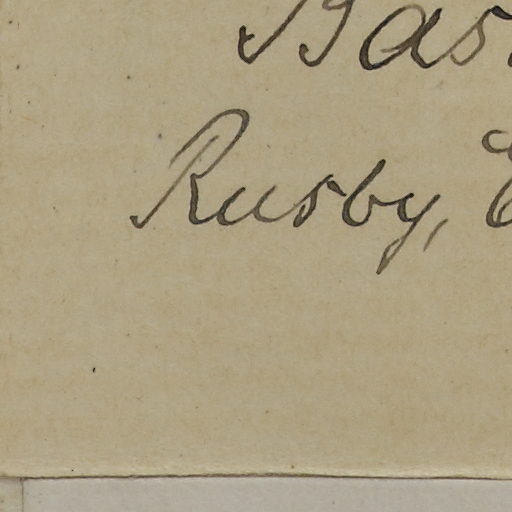 Bas
Rusby,